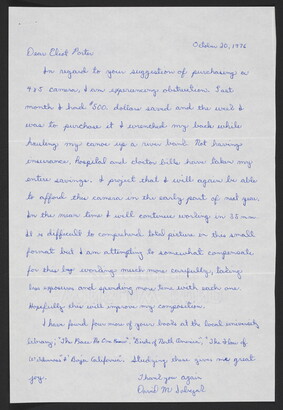 October 20, 1976
Dear Eliot Porter
In regard to your suggestion of purchasing a
4x5 camera, I am experiencing obstruction. Last
month I had $500. dollars saved and the week I
was to purchase it I wrenched my back while
hauling my canoe up a river bank. Not having
insurance, hospital and doctor bills have taken my
entire savings. I project that I will again be able
to afford this camera in the early part of next year.
In the mean time I will continue working in 35 mm.
It is difficult to comprehend total picture in this small
format but I am attempting to somewhat compensate
for this by working much more carefully, taking
less exposures and spending more time with each one.
Hopefully this will improve my composition.
I have found four more of your books at the local university
library; "The Place No One Knew", "Birds of North America", "The Glen of
Wilderness" & "Baja California". Studying these gives me great
joy.
Thank you again
David M.